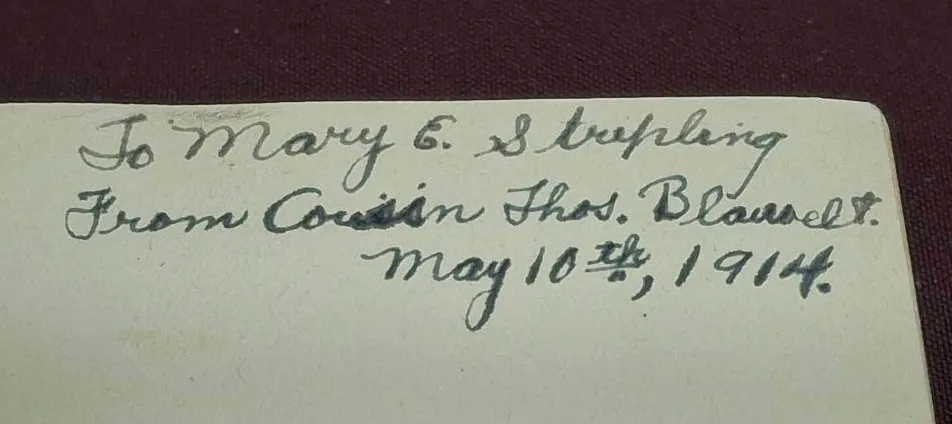 To Mary E. Stripling
From Cousin Thos. Blauvelt.
May 10th, 1914.